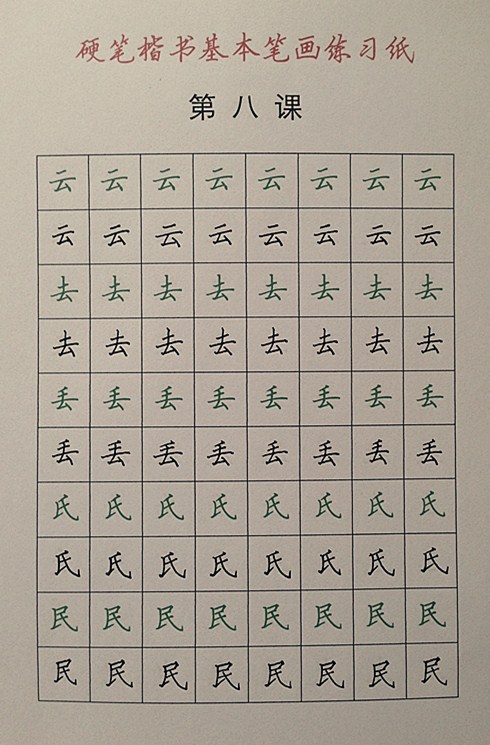 硬笔楷书基本笔画练习纸
第八课
云云云云云云云云
云云云云云云云云
去去去去去去去去
去去去去去去去去
丢丢丢丢丢丢丢丢
丢丢丢丢丢丢丢丢
氏氏氏氏氏氏氏氏
氏氏氏氏氏氏氏氏
民民民民民民民民
民民民民民民民民